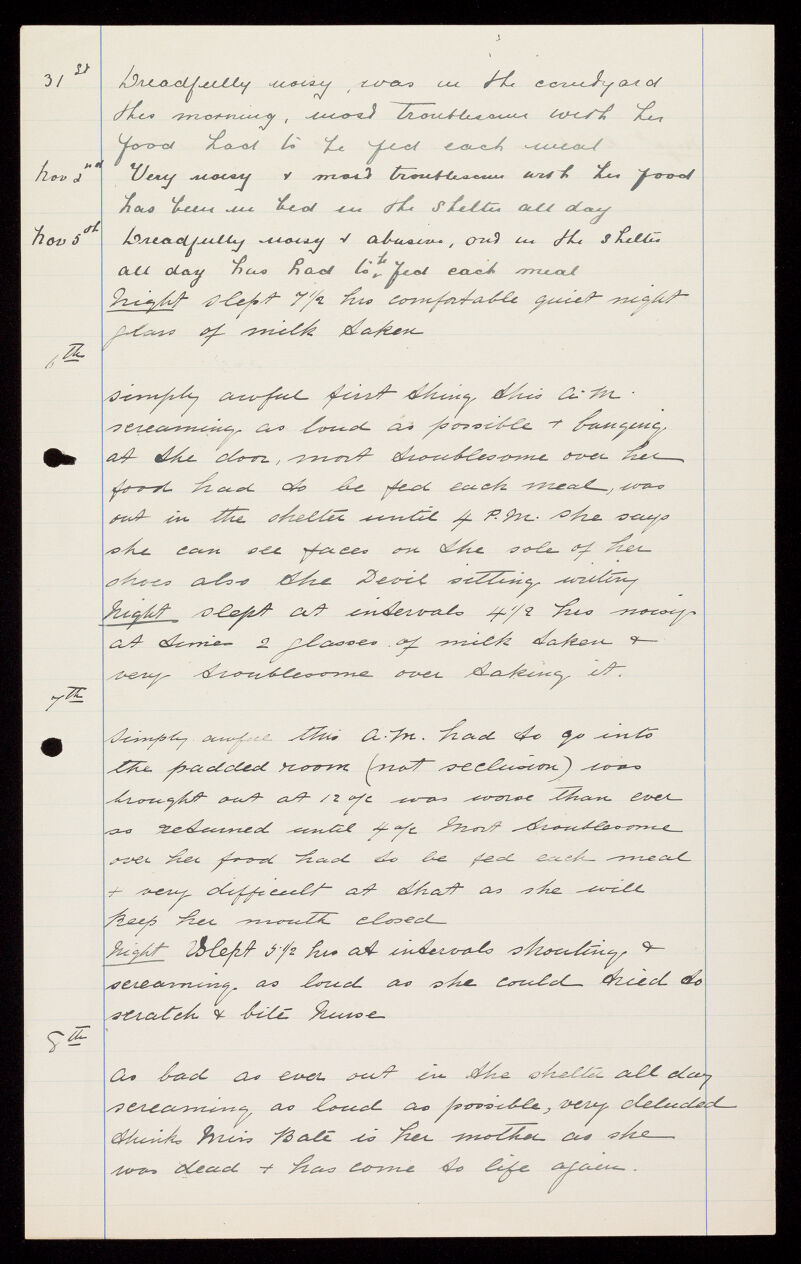 31st Dreadfully noisy, was in the courtyard
this morning, most troublesome with her
food had to be fed each meal
Nov 2nd Very noisy & most troublesome with her food
has been in bed in the shelter all day
Nov 5th Dreadfully noisy & abusive, out in the shelter
all day has had to be fed each meal
Night slept 7 1/2 hrs comfortable quiet night
glass of milk taken
6th
simply awful first thing this A.M.
screaming as loud as possible + banging
at the door, most troublesome over her
food had to be fed each meal, was
out in the shelter until 4 P.M. she says
she can see faces on the sole of her
shoes also the Devil sitting writing
Night slept at intervals 4 1/2 hrs noisy
at times 2 glasses of milk taken &
very troublesome over taking it.
7th
Simply awful this A.M. had to go into
the padded room (not seclusion) was
brought out at 12 o/c was worse than ever
so returned until 4 o/c Most troublesome
over her food had to be fed each meal
+ very difficult at that as she will
keep her mouth closed
Night Slept 5 1/2 hrs at intervals shouting &
screaming as loud as she could tried to
scratch & bite Nurse
8th
As bad as ever out in the shelter all day
screaming as loud as possible, very deluded
thinks Miss Bate is her mother as she
was dead + has come to life again.